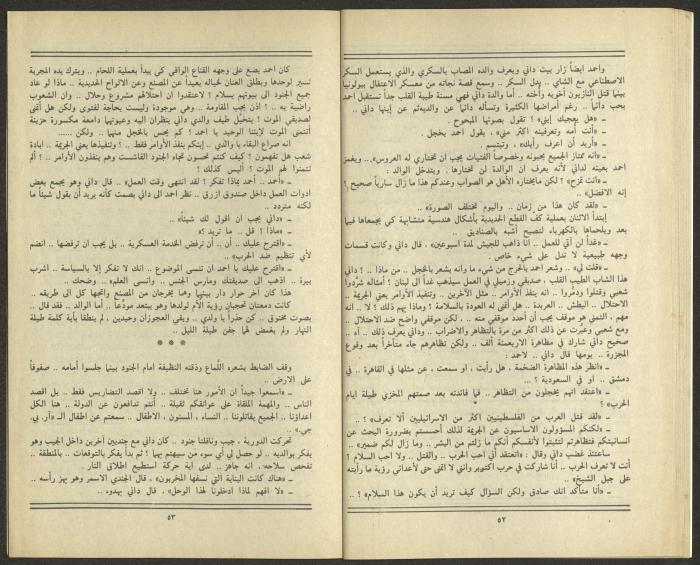 واحمد ايضاً زار بيت داني ويعرف والده المصاب بالسكري والذي يستعمل السكر
الاصطناعي مع الشاي .. بدل السكر .. وسمع قصة نجاته من معسكر الاعتقال ببولونيا
بينما قتل النازيون أخويه وأخته .. أما والدة داني فهي مسنة طيبة القلب جداً تستقبل احمد
بحب دائماً .. رغم أمراضها الكثيرة وتسأله دائماً عن والديه ثم عن إبنها داني ..
ـ «هل يعجبك إبني» ؟ تقول بصوتها المبحوح .
ـ «أنت أمه وتعرفينه اكثر مني» ، يقول احمد بخجل .
ـ «أريد أن اعرف رأيك» ، وتبتسم .
ـ «انه ممتاز الجميع يحبونه وخصوصاً الفتيات يجب ان تختاري له العروس».. ويغمز
احمد بعينه لداني لأنه يعرف ان الوالدة لن تختارها . ويتدخل الوالد :
ـ «انت تمزح» ؟ لكن ما يختاره الأهل هو الصواب وعندكم هذا ما زال سارياً صحيح ؟
إنه الافضل» ..
ـ «لقد كان هذا من زمان .. واليوم تختلف الصورة» ..
إبتدأ الاثنان بعملية كف القطع الحديدية بأشكال هندسية متشابهة كي يجمعاها فيما
بعد ويلحماها بالكهرباء لتصبح أشبه بالصناديق ..
ـ «غداً لن آتي للعمل .. أنا ذاهب للجيش لمدة أسبوعين» . قال داني وكانت قسمات
وجهه طبيعية لا تدل على شيء خاص .
ـ «قلت لي» .. وشعر أحمد بالحرج من شيء ما وانه يشعر بالخجل .. من ماذا .. ؟ داني
هذا الشاب الطيب القلب ، صديقي وزميلي في العمل سيذهب غداً الى لبنان ؟ أمثاله شرّدوا
شعبي وقتلوا ودمّروا .. انه ينفذ الأوامر .. مثل الآخرين .. وتنفيذ الأوامر يعني الجريمة ..
الاحتلال .. البطش .. العربدة .. هل أتمنى له العودة بالسلامة ؟ وماذا يهم ذلك ؟ لا .. انه
مهم ، المهم هو موقف يجب أن أحدد موقفي منه .. ، لكن موقفي واضح ضد الاحتلال ..
ومع شعبي وعبّرت عن ذلك اكثر من مرة بالتظاهر والاضراب .. وداني يعرف ذلك .. آه ..
صحيح داني شارك في مظاهرة الاربعمئة ألف .. ولكن تظاهرهم جاء متأخراً بعد وقوع
المجزرة .. يومها قال داني .. لأحمد :
ـ «انظر هذه المظاهرة الضخمة ، هل رأيت ، او سمعت ، عن مثلها في القاهرة .. في
دمشق .. او في السعودية ؟ ...
ـ «أعتقد أنهم يخجلون من التظاهر .. فما فائدته بعد صمتهم المخزي طيلة ايام
الحرب» ؟
ـ «لقد قتل العرب من الفلسطينيين اكثر من الاسرائيليين ألا تعرف» ؟ ..
ـ «لكنكم المسؤولون الاساسيون عن الجريمة لذلك أحسستم بضرورة البحث عن
انسانيتكم فتظاهرتم لتثبتوا لأنفسكم أنكم ما زلتم من البشر .. وما زال لكم ضمير» ..
ساعتئذ غضب داني وقال : «أتعتقد أني احب الحرب .. والقتل .. ولا احب السلام ؟
أنت لا تعرف الحرب .. أنا شاركت في حرب اكتوبر وانني لا اتمنى حتى لأعدائي رؤية ما رأيته
على جبل الشيخ» ..
ـ «أنا متأكد انك صادق ولكن السؤال كيف تريد أن يكون هذا السلام» ؟ ..
٥٢
كان احمد يضع على وجهه القناع الواقي كي يبدأ بعملية اللحام .. ويترك يده المجربة
تسير لوحدها ويطلق العنان لخياله بعيداً عن المصنع وعن الالواح الحديدية .. ماذا لو عاد
جميع الجنود الى بيوتهم بسلام ؟ لاعتقدوا ان احتلالهم مشروع وحلال .. وان الشعوب
راضية به .. ! اذن يجب المقاومة .. وهي موجودة وليست بحاجة لفتوى ولكن هل أتمنى
لصديقي الموت ؟ يتخيل طيف والدي داني ينظران اليه وعيونهما دامعة مكسورة حزينة
أتتمنى الموت لإبننا الوحيد يا احمد ؟ كم يحس بالخجل منهما .. ولكن ......
انه صراع البقاء يا والدي .. إبنكم ينفذ الأوامر فقط .. ! وتنفيذها يعني الجريمة .. ابادة
شعب هل تفهمون ؟ كيف كنتم تحسون تجاه الجنود الفاشست وهم ينفذون الأوامر .. ! ألم
تتمنوا لهم الموت ؟ أليس كذلك ؟
ـ «أحمد .. أحمد بماذا تفكر ؟ لقد انتهى وقت العمل» .. قال داني وهو يجمع بعض
ادوات العمل داخل صندوق ازرق .. نظر احمد الى داني بصمت كأنه يريد أن يقول شيئاً ما
لكنه متردد ..
ـ «داني يجب ان اقول لك شيئاً» ..
ـ «ماذا ؟ قل .. ما تريد ؟»
ـ «أقترح عليك .. أن .. أن ترفض الخدمة العسكرية .. بل يجب ان ترفضها .. انضم
لأي تنظيم ضد الحرب» ..
ـ «اقترح عليك يا احمد ان تنسى الموضوع .. انك لا تفكر إلا بالسياسة .. اشرب
بيرة .. اذهب الى صديقتك ومارس الجنس .. وانسى العلوم» .. وضحك ..
هذا كان آخر حوار دار بينهما وهما يخرجان من المصنع واتجها كل الى طريقه ..
كانت دمعتان تحجبان رؤية الأم لولدها وهو يبتعد مودّعاً .. أما الوالد .. فقد قال ..
بصوت مختوق .. كن حذراً يا ولدي .. وبقي العجوزان وحيدين ، لم ينطقا بأية كلمة طيلة
النهار ولم يغمض لهما جفن طيلة الليل ..
* * *
وقف الضابط بشعره اللمّاع وذقنه النظيفة امام الجنود بينما جلسوا أمامه .. صفوفاً
على الارض ..
ـ «اسمعوا جيداً ان الأمور هنا تختلف .. ولا اقصد التضاريس فقط .. بل اقصد
الناس .. والمهمة الملقاة على عواتقكم ثقيلة .. أنتم تدافعون عن الدولة .. هنا الكل
اعداؤنا .. الجميع يقاتلوننا .. النساء ، المسنون ، الاطفال .. سمعتم عن اطفال الـ «آر. بي.
جي.» ..
تحركت الدورية ، جيب وناقلتا جنود .. كان داني مع جنديين آخرين داخل الجيب وهو
يفكر بوالديه .. لو حصل لي أي سوء من سيهتم بهما ؟ ثم بدأ يفكر بالتوقعات .. بالمنطقة ..
تفحص سلاحه. انه جاهز.. لدى اية حركة استطيع اطلاق النار .
ـ «هناك كانت البناية التي نسفها المخربون» ، قال الجندي الاسمر وهو يهز رأسه ..
ـ «لا افهم لماذا ادخلونا لهذا الوحل» . قال داني بهدوء ..
٥٣